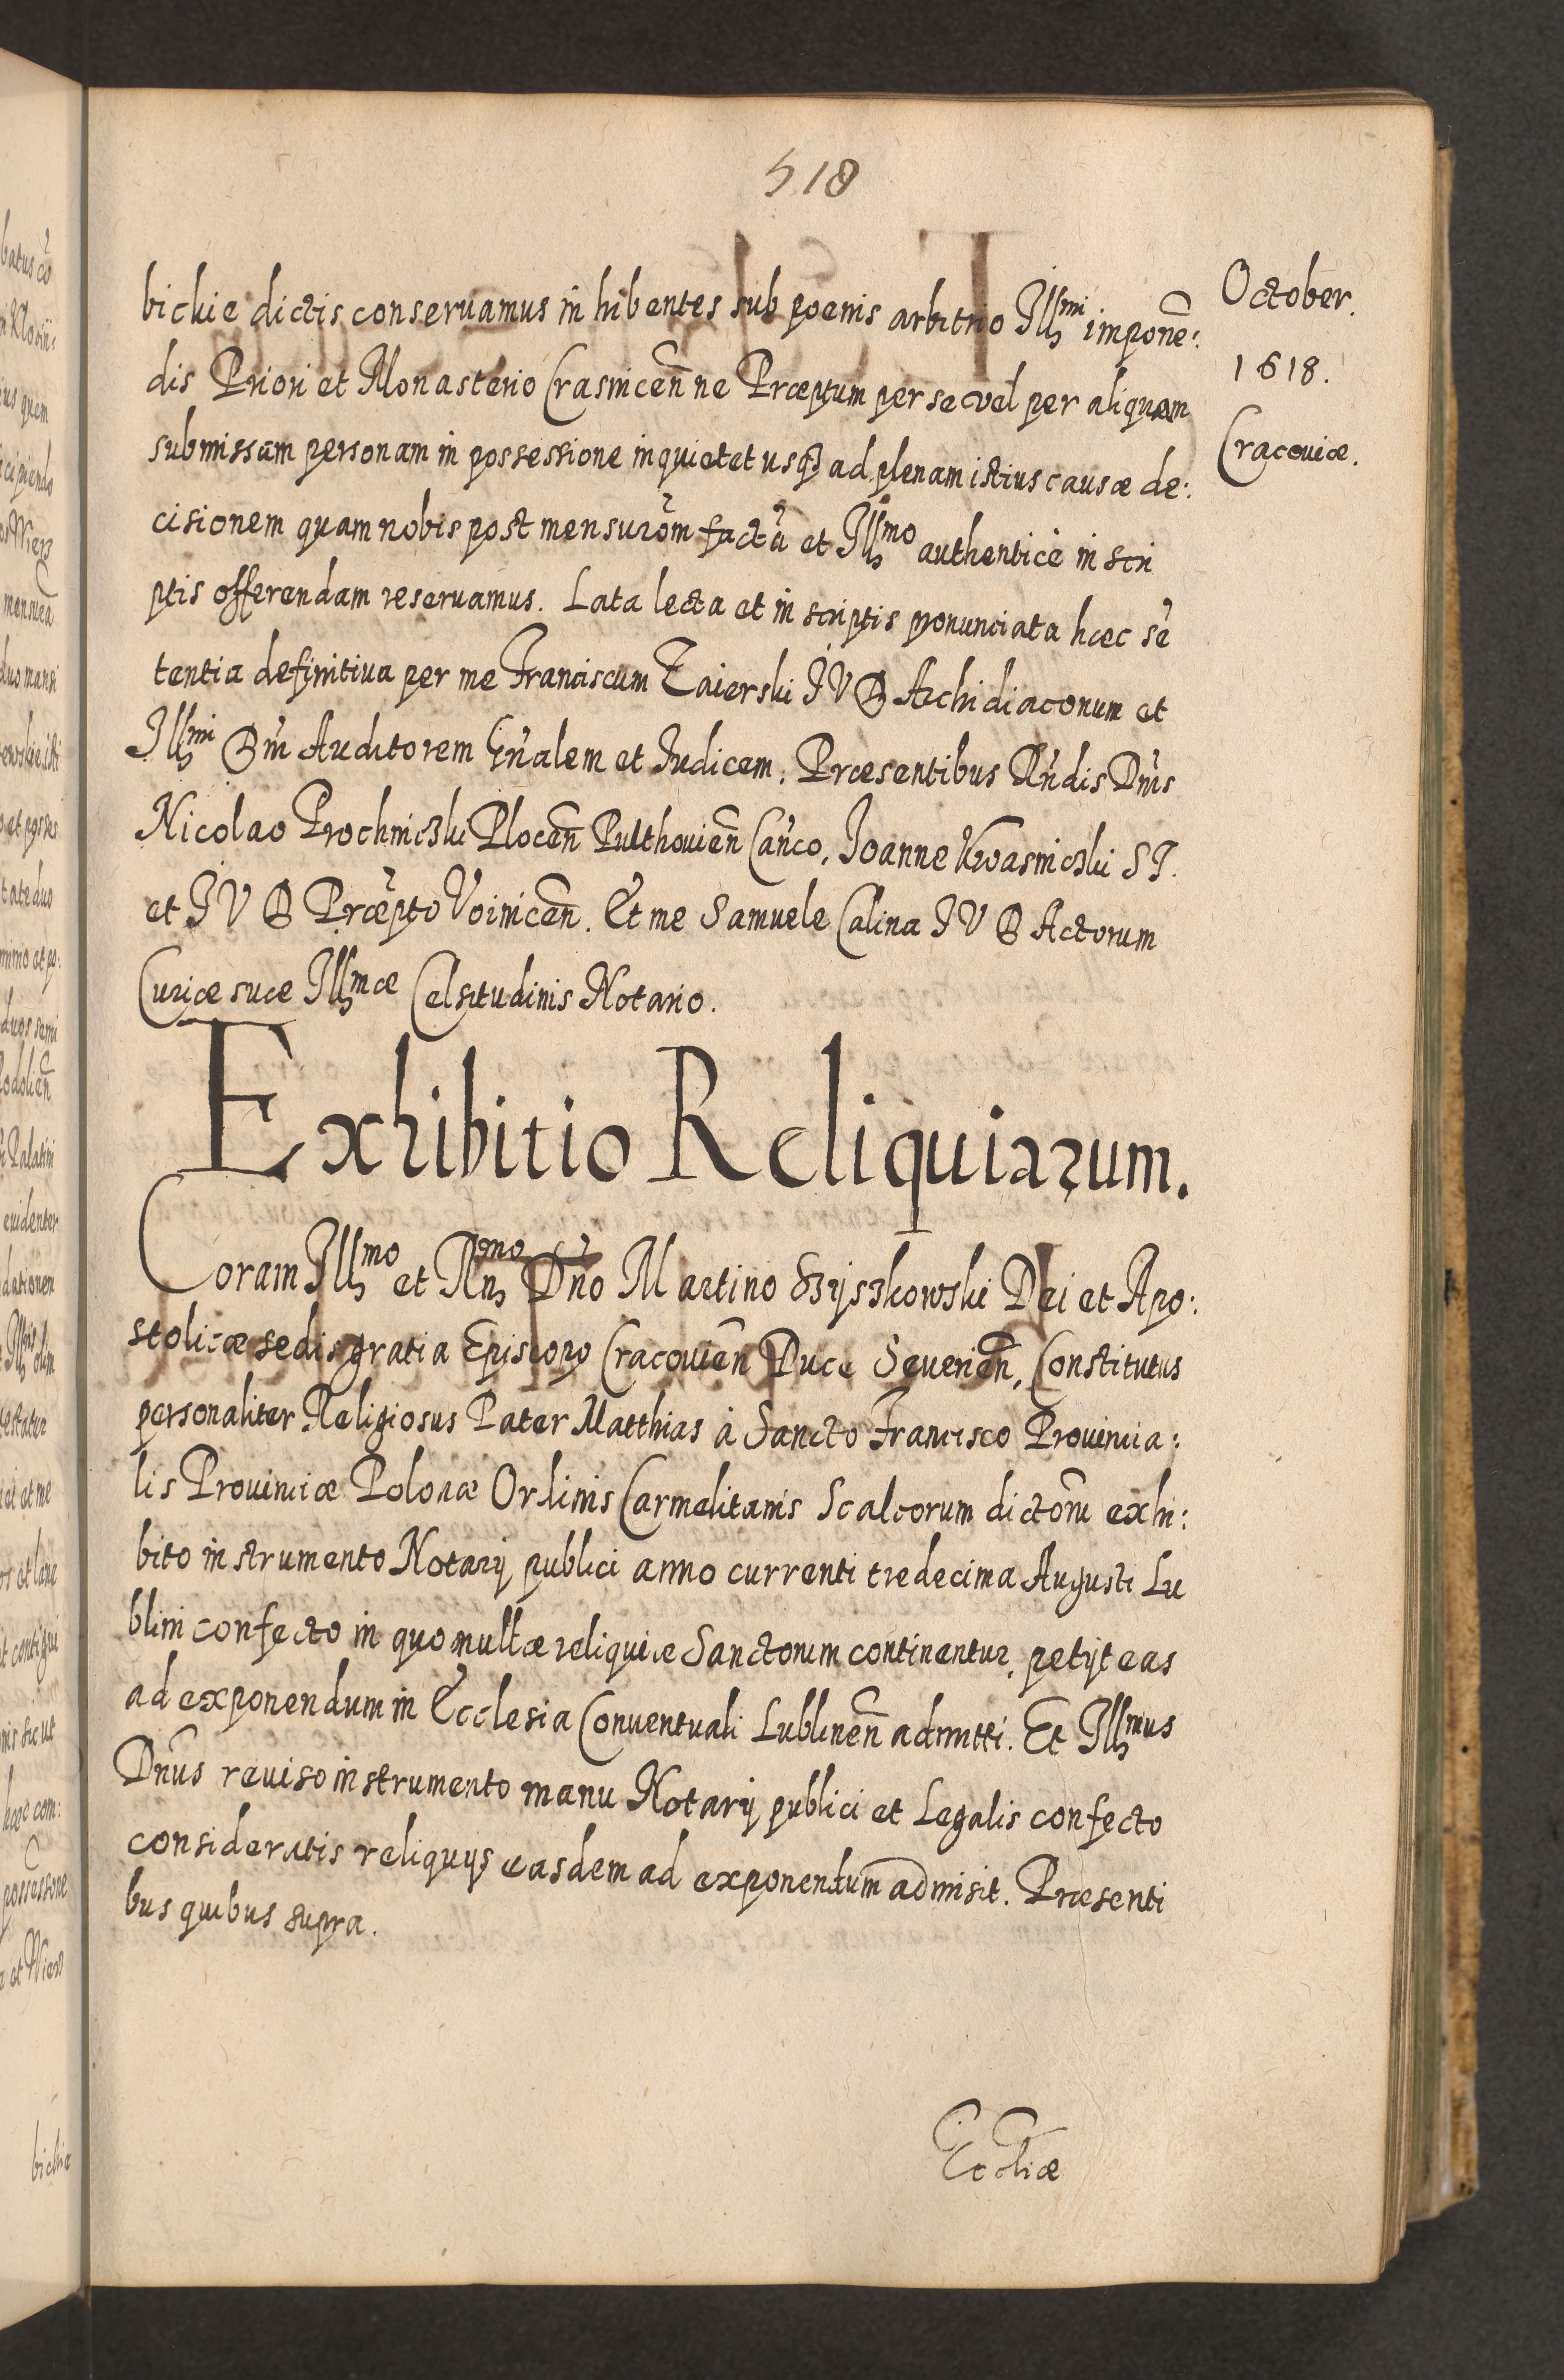 518
October.
1618.
Cracouiæ.
bickie dictis conseruamus inhibentes sub poenis arbitrio Illmi imponẽ:
dis Priori et Monasterio Crasnicen̄ ne Præptum per se vel per aliquam
submissam personam in possessione inquietet usq3 ad plenam istius causæ de:
cisionem quam nobis post mensurōm factã et Illmo authenticè in scri
ptis offerendam reseruamus. Lata lecta et in scriptis pronunciata hæc sẽ
tentia definitiua per me Franciscum Zaierski I V D Archidiaconum et
Illmi Dñi Auditorem Gñalem et Iudicem. Præsentibus Rñdis Dñis
Nicolao Prochniczki Plocen̄ Pulthouien̄ Cañco, Ioanne Kwasniczki S I.
et I V D Præpto Voinicen̄. Et me Samuele Calina I V D Actorum
Curiæ suæ Illmæ Celsitudinis Notario.
Exhibitio Reliquiarum.
Coram Illmo et Rñmo Dño Martino Szyszkowski Dei et Apo:
stolicæ sedis gratia Episcopo Cracouien̄ Duce Seuerien̄, Constitutus
personaliter Religiosus Pater Matthias à Sancto Francisco Prouincia:
lis Prouinciæ Polonæ Ordinis Carmelitanis Scalcorum dictorū exhi:
bito instrumento Notarij publici anno currenti tredecima Augusti Lu
blini confecto in quo multæ reliquiæ Sanctorum continentur, petijt eas
ad exponendum in Ecclesia Conuentuali Lublinen̄ admitti. Et Illmus
Dñus reuiso instrumento manu Notarij publici et Legalis confecto
consideratis reliquijs easdem ad exponendum admisit. Præsenti
bus quibus supra.
Eccliæ